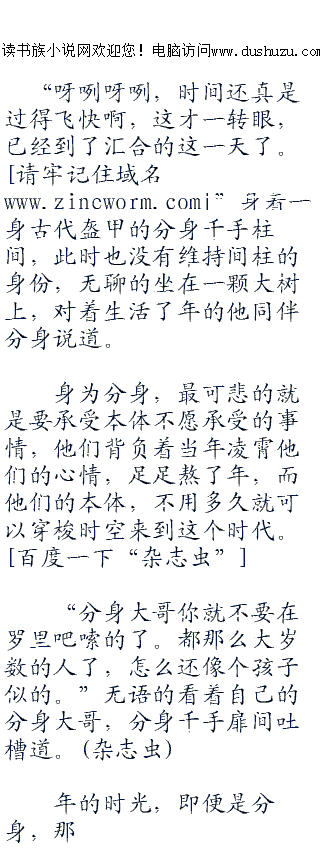 读书族小说网欢迎您！电脑访问www.dushuzu.com
“呀咧呀咧，时间还真是
过得飞快啊，这才一转眼，
已经到了汇合的这一天了。
[请牢记住域名
www.zincworm.com|”身着一
身古代盔甲的分身千手柱
间，此时也没有维持间柱的
身份，无聊的坐在一颗大树
上，对着生活了年的他同伴
分身说道。
身为分身，最可悲的就
是要承受本体不愿承受的事
情，他们背负着当年凌霄他
们的心情，足足熬了年，而
他们的本体，不用多久就可
以穿梭时空来到这个时代。
[百度一下“杂志虫”]
“分身大哥你就不要在
罗里吧嗦的了。都那么大岁
数的人了，怎么还像个孩子
似的。”无语的看着自己的
分身大哥，分身千手扉间吐
槽道。(杂志虫)
年的时光，即便是分
身，那